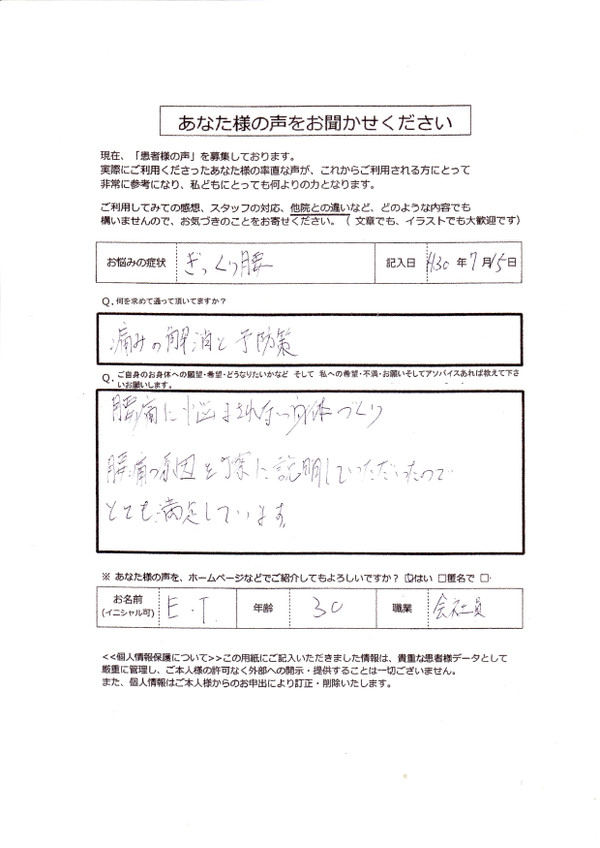 あなた様の声をお聞かせください
現在、「患者様の声」を募集しております。
実際にご利用くださったあなた様の率直な声が、これからご利用される方にとって
非常に参考になり、私どもにとっても何よりの力となります。
ご利用してみての感想、スタッフの対応、他院との違いなど、どのような内容でも
構いませんので、お気づきのことをお寄せください。（ 文章でも、イラストでも大歓迎です）
お悩みの症状 ぎっくり腰 記入日 H30 年 7 月 15 日
Q. 何を求めて通って頂いてますか？
痛みの解消と予防策
Q. ご自身のお身体への願望・希望・どうなりたいかなど そして 私への希望・不満・お願いそしてアソバイスあれば教えて下さ
いお願いします。
腰痛に悩まされない身体づくり
腰痛の原因を丁寧に説明していただいたので
とても満足しています。
※ あなた様の声を、ホームページなどでご紹介してもよろしいですか？ ☑はい □匿名で □
お名前 E.T. 年齢 30 職業 会社員
(イニシャル可)
<<個人情報保護について>>この用紙にご記入いただきました情報は、貴重な患者様データとして
厳重に管理し、ご本人様の許可なく外部への開示・提供することは一切ございません。
また、個人情報はご本人様からのお申出により訂正・削除いたします。